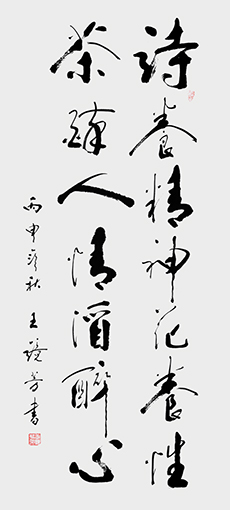 詩養精神花養性
茶人情酒醉心
丙申秋 王芳書